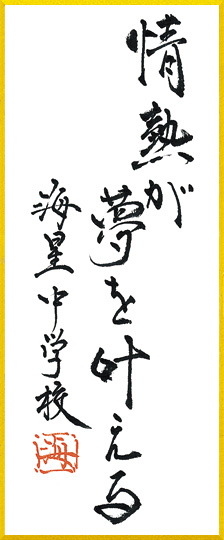 情熱が
夢を叶える
海星中学校
海